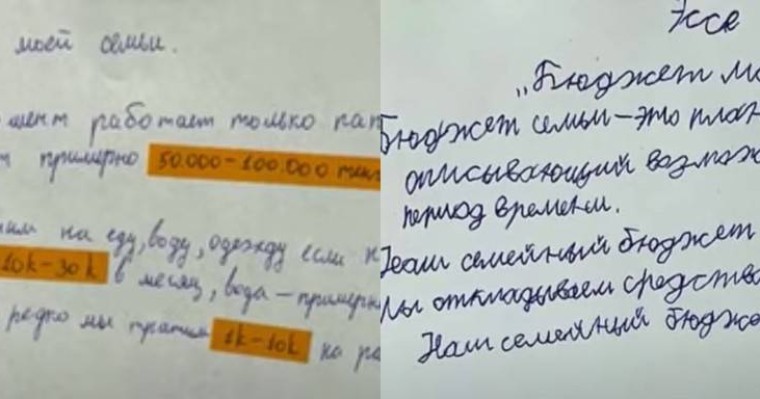 моей семьи.
мент работает только пап
т примерно 50.000-100.000 тен
им на еду, воду, одежду если н
10k-30k в месяц, вода - примерн
редко мы тратим 1k-10k на ра
Эссе
„Бюджет мо
Бюджет семьи - это план
описывающий возмож
период времени.
Наш семейный бюджет
Мы откладываем средства
Наш семейный бюдже